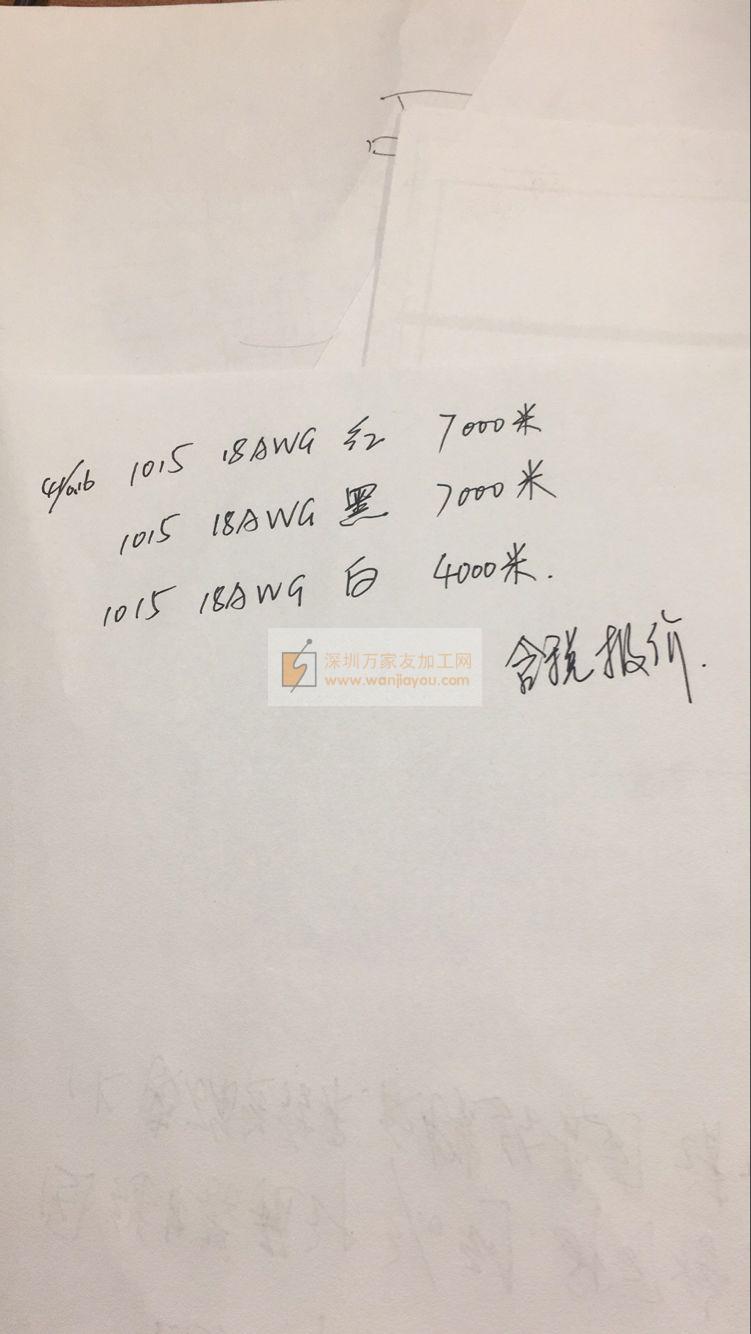 41/0.16 1015 18AWG 红 7000米
1015 18AWG 黑 7000米
1015 18AWG 白 4000米.
深圳万家友加工网
www.wanjiayou.com
含税报价.